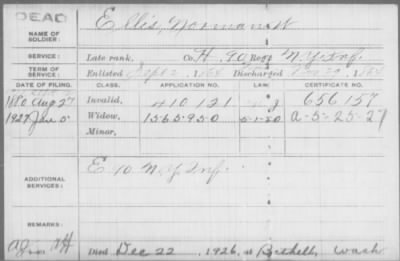 DEAD
NAME OF SOLDIER: Ellis, Norman W
SERVICE: Late rank, Co. H, 90 Reg't N.Y. Inf.
TERM OF SERVICE: Enlisted Discharged
DATE OF FILING. CLASS. APPLICATION NO. LAW. CERTIFICATE NO.
1880 Aug 27 Invalid, 410 121 656 157
1927 Jan 5 Widow, 1565950 5-1-20 A-5-25-27
Minor,
ADDITIONAL SERVICES: E 10 N.Y. Inf.
REMARKS:
Died Dec 22, 1926, at Bothell, Wash